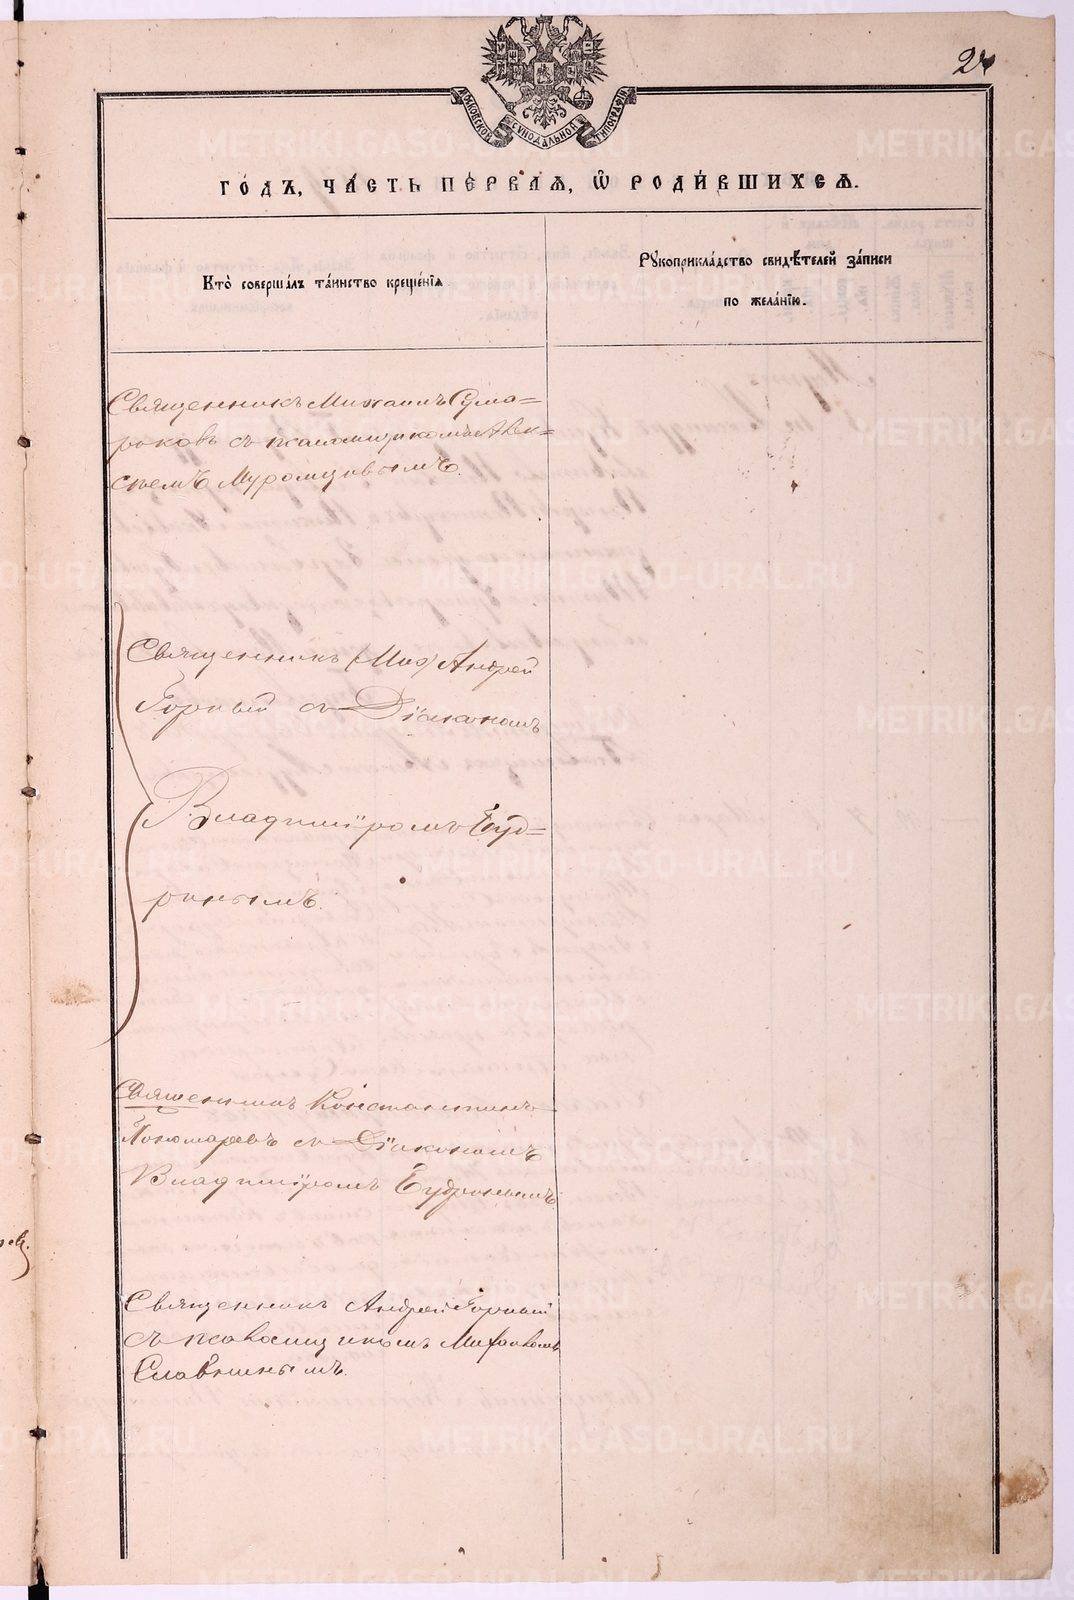 24
МОСКОВСКОЙ СѴНОДАЛЬНОЙ ТИПОГРАФІИ
ГОДЪ, ЧАСТЬ ПЕРВАЯ, Ѡ РОДИВШИХСЯ.
Кто совершалъ таинство крещенія
Рукоприкладство свидѣтелей записи
по желанію.
Священникъ Михаилъ Сума=
роковъ съ псаломщикомъ Алек=
сѣемъ Муромцовымъ.
Священникъ (Мих) Андрей
Горный съ Діакономъ
Владиміромъ Буд=
ринымъ.
Священникъ Константинъ
Пономаревъ съ Діакономъ
Владиміромъ Будринымъ
Священникъ Андрей Горный
съ псаломщикомъ Михаиломъ
Славнинымъ.
METRIKI.GASO-URAL.RU